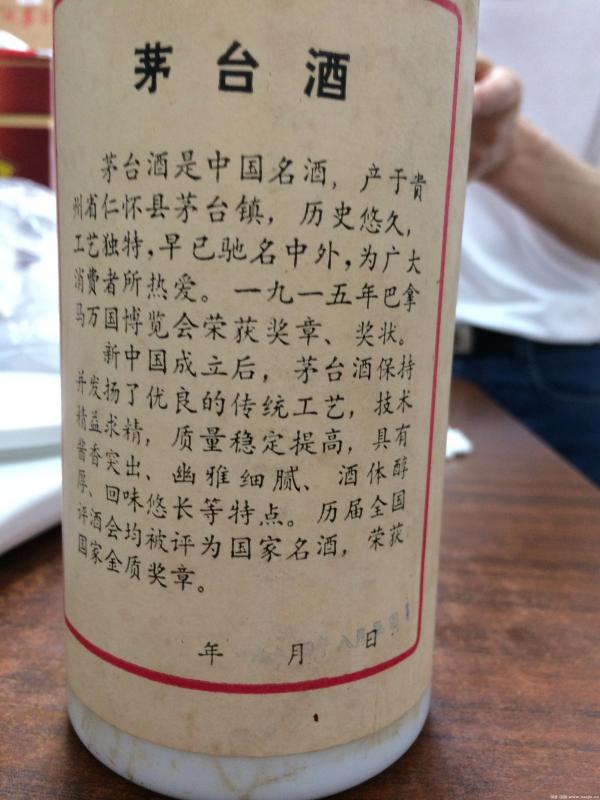 茅台酒
茅台酒是中国名酒，产于貴
州省仁怀县茅台镇，历史悠久，
工艺独特，早已驰名中外，为广大
消费者所热爱。一九一五年巴拿
马万国博览会荣获奖章、奖状。
新中国成立后，茅台酒保持
并发扬了优良的传统工艺，技术
精益求精，质量稳定提高，具有
酱香突出、幽雅细腻、酒体醇
厚、回味悠长等特点。历届全国
评酒会均被评为国家名酒，荣获
国家金质奖章。
年 月 日